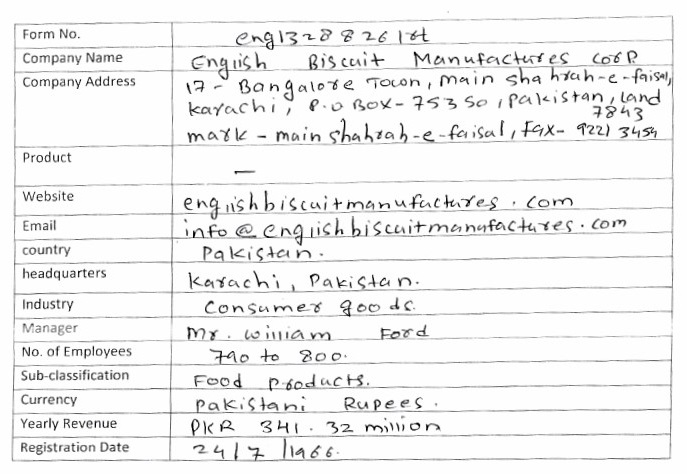 Form No. eng1328826 1st
Company Name English Biscuit Manufactures corp
Company Address 17 - Bangalore Town, main shahrah-e-faisal,
karachi, P.O BOX - 75350, pakistan, land
7843
mark - main shahrah-e-faisal, Fax - 9221 3454
Product —
Website englishbiscuitmanufactures.com
Email info@englishbiscuitmanufactures.com
country Pakistan.
headquarters Karachi, Pakistan.
Industry Consumer goods.
Manager Mr. william Ford
No. of Employees 790 to 800.
Sub-classification Food Products.
Currency Pakistani Rupees.
Yearly Revenue PKR 341.32 million
Registration Date 24/7/1966.